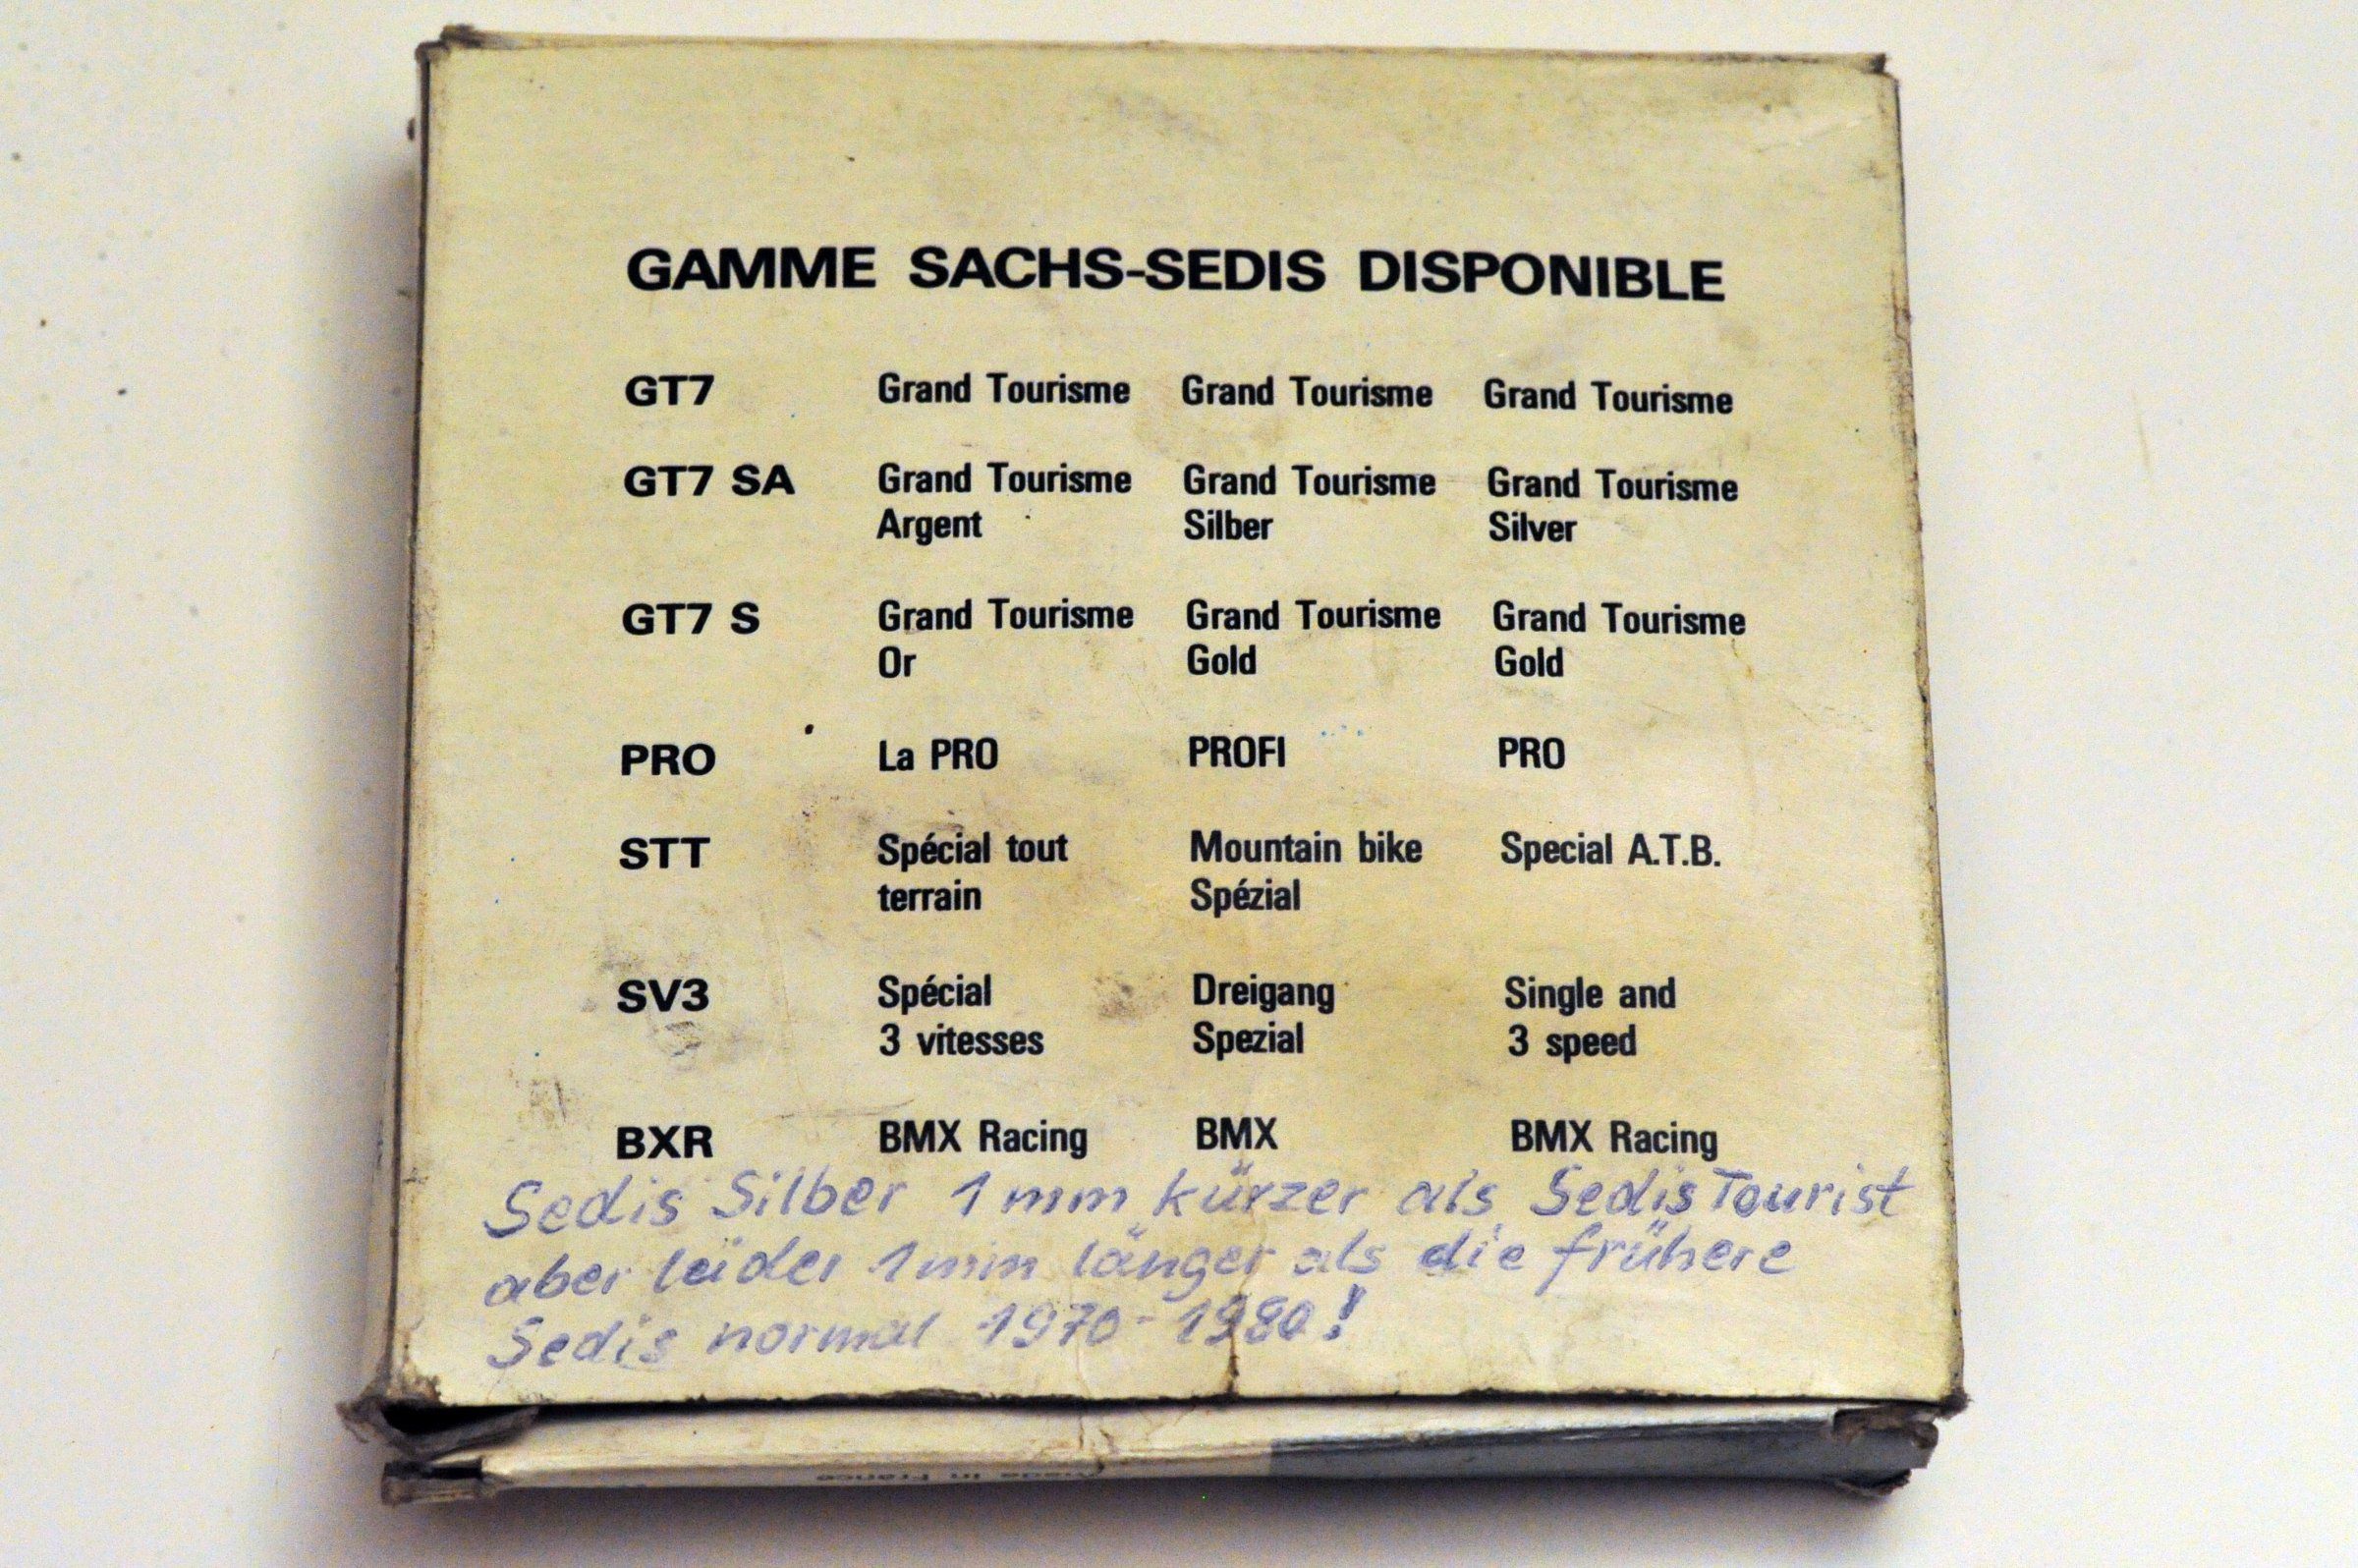 GAMME SACHS-SEDIS DISPONIBLE
GT7 Grand Tourisme Grand Tourisme Grand Tourisme
GT7 SA Grand Tourisme Grand Tourisme Grand Tourisme
Argent Silber Silver
GT7 S Grand Tourisme Grand Tourisme Grand Tourisme
Or Gold Gold
PRO La PRO PROFI PRO
STT Spécial tout Mountain bike Special A.T.B.
terrain Spézial
SV3 Spécial Dreigang Single and
3 vitesses Spezial 3 speed
BXR BMX Racing BMX BMX Racing
Sedis Silber 1 mm kürzer als Sedis Tourist
aber leider 1mm länger als die frühere
Sedis normal 1970-1980!
Made in France